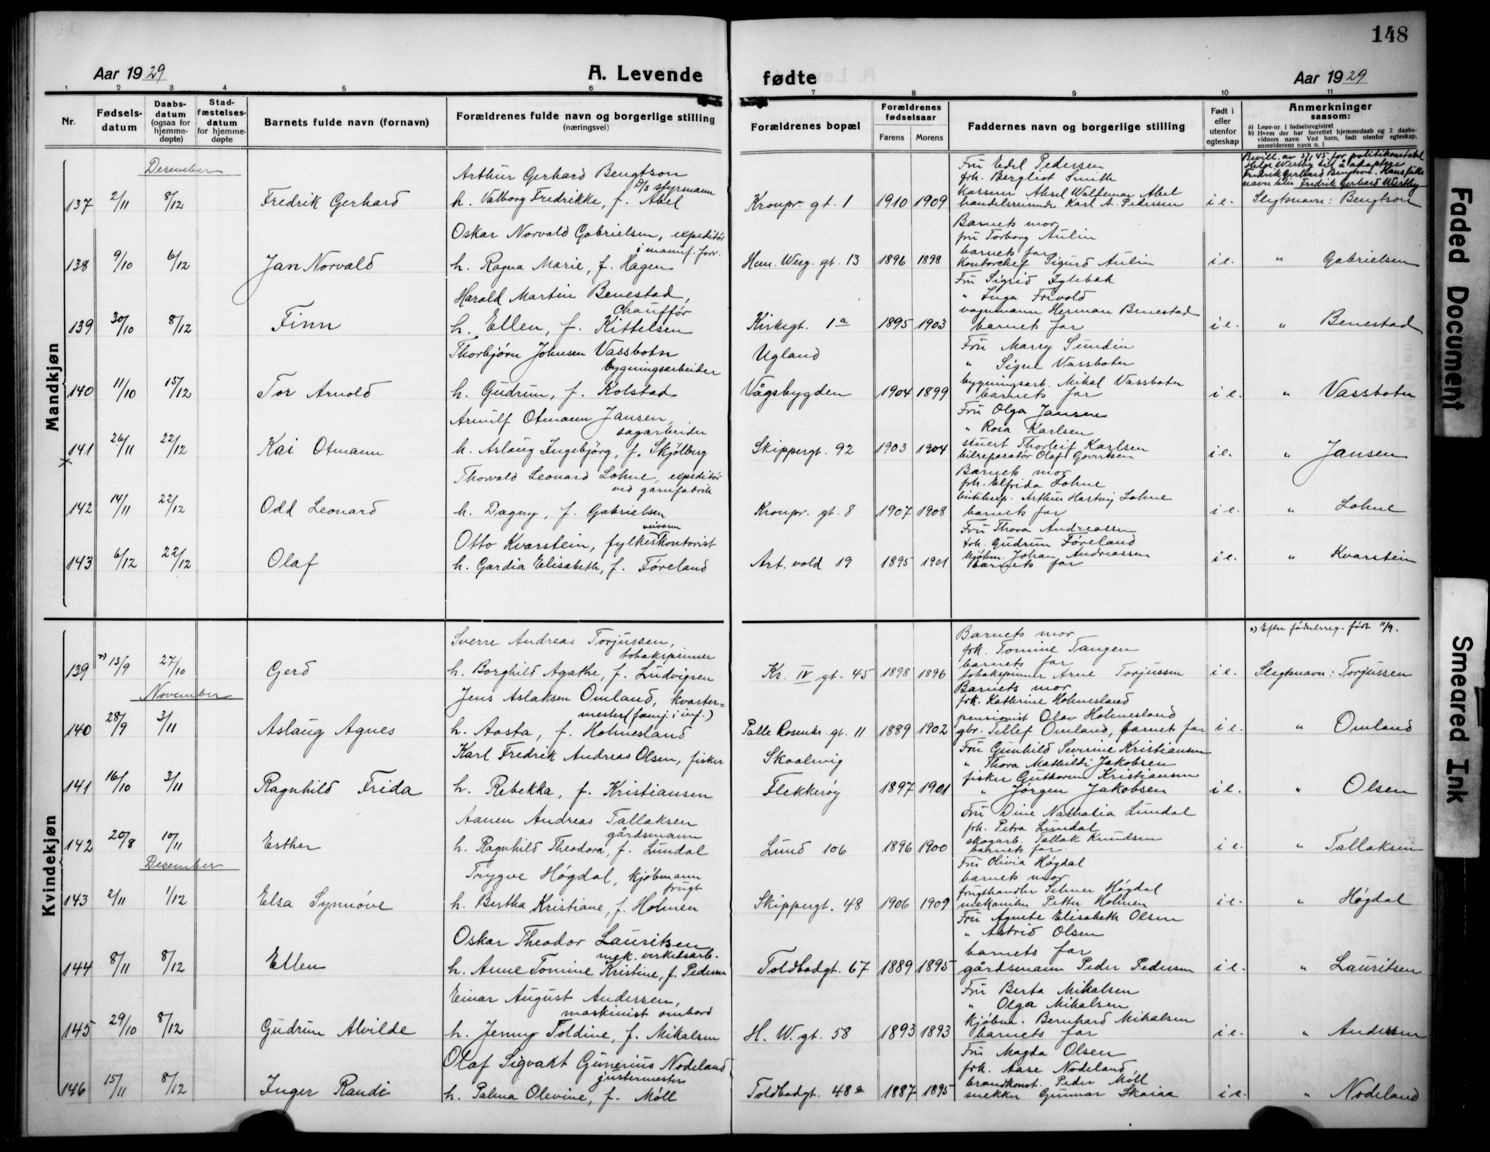 148
Aar 1929
A. Levende
fødte
Aar 1929
1 2 3 4 5 6 7 8 9 10 11
Nr.
Fødsels-
datum
Daabs-
datum
(ogsaa for
hjemme-
døpte)
Stad-
fæstelses-
datum
for hjemme-
døpte
Barnets fulde navn (fornavn)
Forældrenes fulde navn og borgerlige stilling
(næringsvei)
Forældrenes bopæl
Forældrenes
fødselsaar
Farens Morens
Faddernes navn og borgerlige stilling
Født i
eller
utenfor
egteskap
Anmerkninger
saasom:
a) Løpe-nr. i fødselsregistret
b) Hvem der har forrettet hjemmedaab og 2 daabs-
vidners navn. Ved barn, født utenfor egteskap,
anmelderens navn o. l.
Mandkjøn
Desember
137 2/11 8/12 Fredrik Gerhard
Arthur Gerhard Bengtson
D/S styrmann
h. Valborg Fredrikke, f. Abel
Kronpr. gt. 1 1910 1909
Fru Edel Pedersen
frk. Bergliot Smith
Aksel Waldemar Abel
handelsreisende Karl A. Pedersen
i e.
Bevill. av 3/1 45 for politikonstabel
Helge Westby til å adoptere
Fredrik Gerhard Bengtson. Hans fulle
navn blir Fredrik Gerhard Westby
Slegtsnavn: Bengtson
138 9/10 6/12 Jan Norvald
Oskar Norvald Gabrielsen, expeditør
i manuf. forr.
h. Ragna Marie, f. Hagen
Hen. Werg. gt. 13 1896 1898
Barnets mor
fru Torborg Aulin
barnets far
kontorchef Sigurd Aulin
i e. " Gabrielsen
139 30/10 8/12 Finn
Harald Martin Benestad,
chauffør
h. Ellen, f. Kittelsen
Kirkegt. 1a 1895 1903
Fru Sigrid Iglebæk
" Inga Frivold
vognmann Herman Benestad
barnets far
i e. " Benestad
140 11/10 15/12 Tor Arnold
Thorbjørn Johnsen Vassbotn
bygningsarbeider
h. Gudrun, f. Kolstad
Ugland
Vågsbygden 1904 1899
Fru Marry Sundin
" Signe Vassbotn
bygningsarb. Mikal Vassbotn
barnets far
i e. " Vassbotn
141 26/11 22/12 Kai Otmann
Arnulf Otmann Jansen,
sagarbeider
h. Aslaug Ingebjørg, f. Skjølberg
Skippergt. 92 1903 1904
Fru Olga Jansen
" Rosa Karlsen
stuert Thorleif Karlsen
bilreparatør Olaf Govertsen
i e. " Jansen
x
142 14/11 22/12 Odd Leonard
Thorvald Leonard Lohne, expeditør
ved garnfabrik
h. Dagny, f. Gabrielsen
Kronpr. gt. 8 1907 1908
Barnets mor
frk. Elfrida Lohne
Arthur Hartvig Lohne
barnets far
i e. " Lohne
143 6/12 22/12 Olaf
Otto Kvarstein, fylkeskontorist
h. Gardia Elisabeth, f. Føreland
Art. vold 19 1895 1901
Fru Thora Andreassen
frk. Gudrun Føreland
kjøbm. Johan Andreassen
barnets far
i e. " Kvarstein
Kvindekjøn
139 x) 13/9 27/10 Gerd
Sverre Andreas Torjussen,
tobakspinner
h. Borghild Agathe, f. Ludvigsen
Kr. IV gt. 45 1898 1896
Barnets mor
frk. Tomine Tangen
barnets far
tobakspinner Arne Torjussen
i e.
x) Efter fødselsreg. født 11/9.
Slegtsnavn: Torjussen
November
140 28/9 3/11 Aslaug Agnes
Jens Aslaksen Omland, kvarter-
mester (fanj. i inf.)
h. Aasta, f. Holmesland
Palle Rosenkr. gt. 11 1889 1902
Barnets mor
frk. Kathrine Holmesland
pensionist Olav Holmesland
gbr. Tellef Omland, barnet far
i e. " Omland
141 16/10 3/11 Ragnhild Frida
Karl Fredrik Andreas Olsen, fisker
h. Rebekka, f. Kristiansen
Skaalevig
Flekkerøy 1897 1901
Fru Gunhild Severine Kristiansen
" Thora Mathilde Jakobsen
fisker Guttorm Kristiansen
" Jørgen Jakobsen
i e. " Olsen
142 20/8 10/11 Esther
Aanen Andreas Tallaksen
gårdsmann
h. Ragnhild Theodora, f. Lundal
Lund 106 1896 1900
Fru Dine Nathalia Lundal
frk. Petra Lundal
skogarb. Tallak Knudsen
barnets far
i e. " Tallaksen
Desember
143 2/11 1/12 Elsa Synnøve
Trygve Høgdal, kjøbmann
frugt
h. Bertha Kristiane, f. Holmen
Skippergt. 48 1906 1909
Fru Olivia Høgdal
barnets mor
frugthandler Selmer Høgdal
mekaniker Petter Holmen
i e. " Høgdal
144 8/11 8/12 Ellen
Oskar Theodor Lauritsen
mek. virkstsarb.
h. Anne Tomine Kristine, f. Pedersen
Toldbodgt. 67 1889 1895
Fru Agnete Elisabeth Olsen
" Astrid Olsen
barnets far
gårdsmann Peder Pedersen
i e. " Lauritsen
145 29/10 8/12 Gudrun Alvilde
Einar August Andersen,
maskinist ombord
h. Jenny Toldine, f. Mikalsen
H. W. gt. 58 1893 1893
Fru Berta Mikalsen
" Olga Mikalsen
kjøbm. Bernhard Mikalsen
barnets far
i e. " Andersen
146 15/11 8/12 Inger Randi
Olaf Sigvart Gunerius Nodeland
justermester
h. Palma Olevine, f. Møll
Toldbodgt. 48a 1887 1895
Fru Magda Olsen
frk. Aase Nodeland
brandkonst. Peder Møll
snekker Gunnar Skaiaa
i e. " Nodeland
Faded Document
Smeared Ink